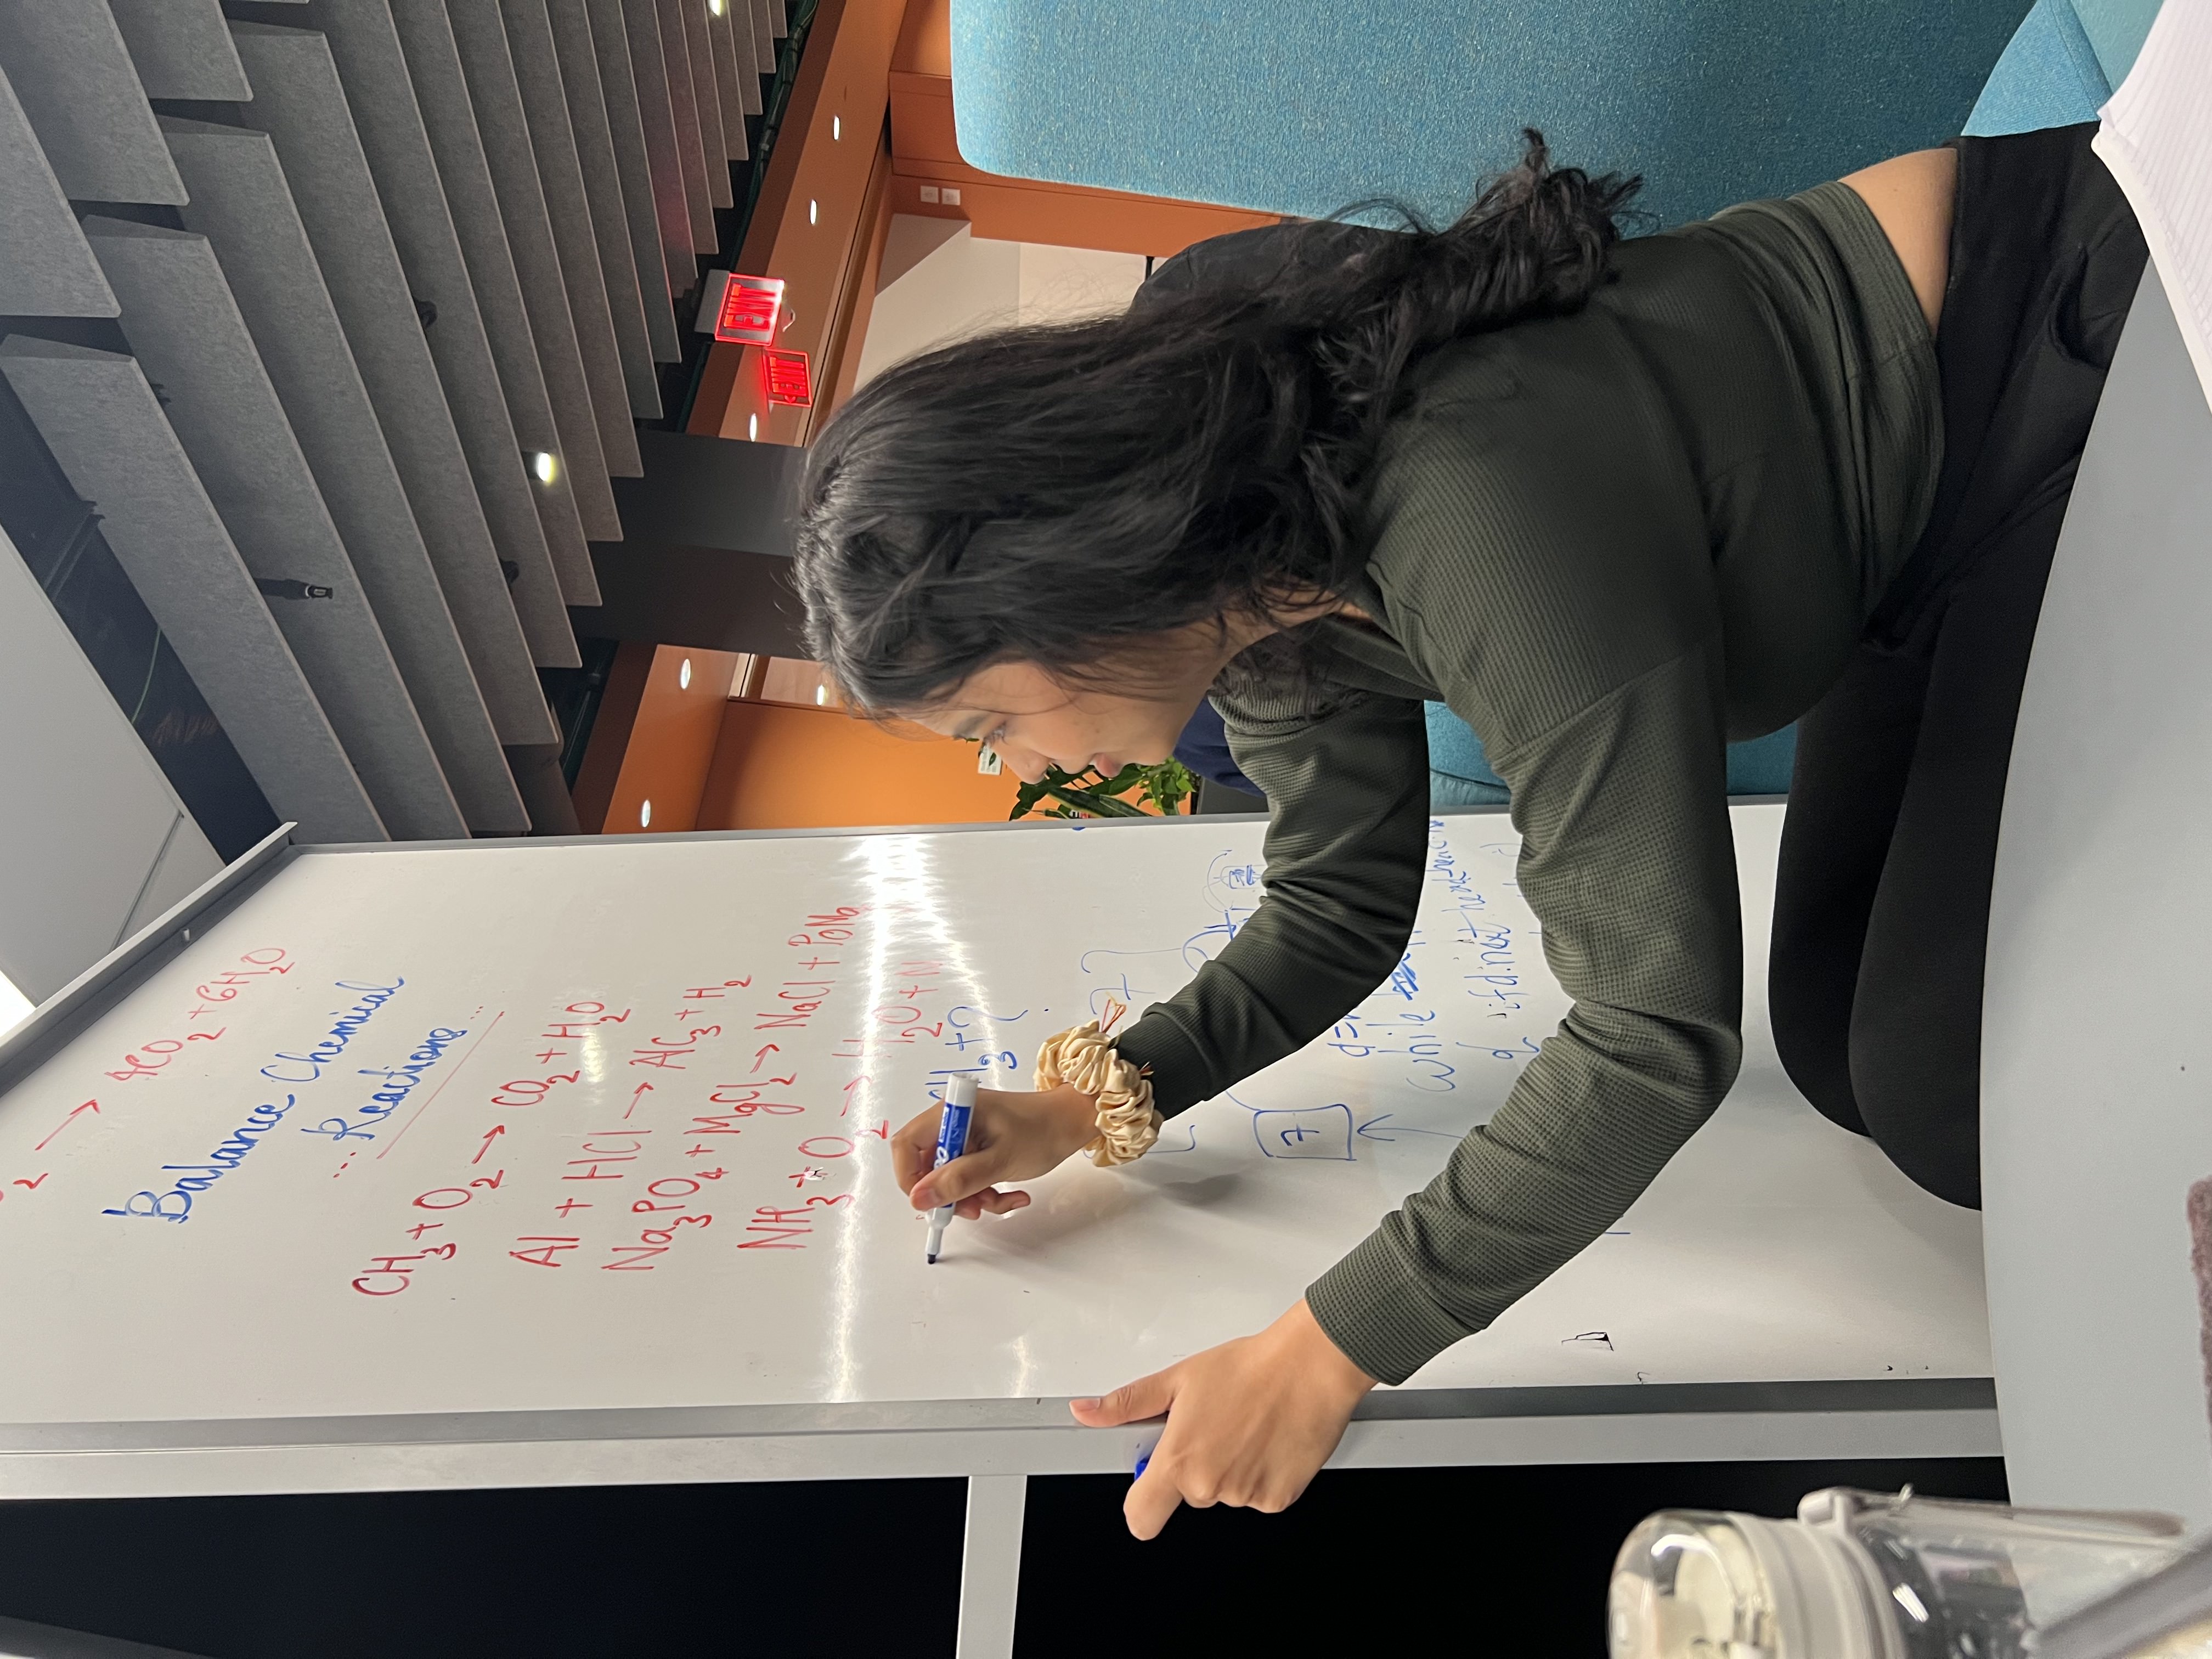 2 → 4CO2 + 6H2O
Balance Chemical
... Reactions...
CH3 + O2 → CO2 + H2O
Al + HCl → AlC3 + H2
Na3PO4 + MgCl2 → NaCl + PoMg
NH3 + O2 → H2O + N
H3 + ?
7
7
while
if d.next
EXIT
EXIT